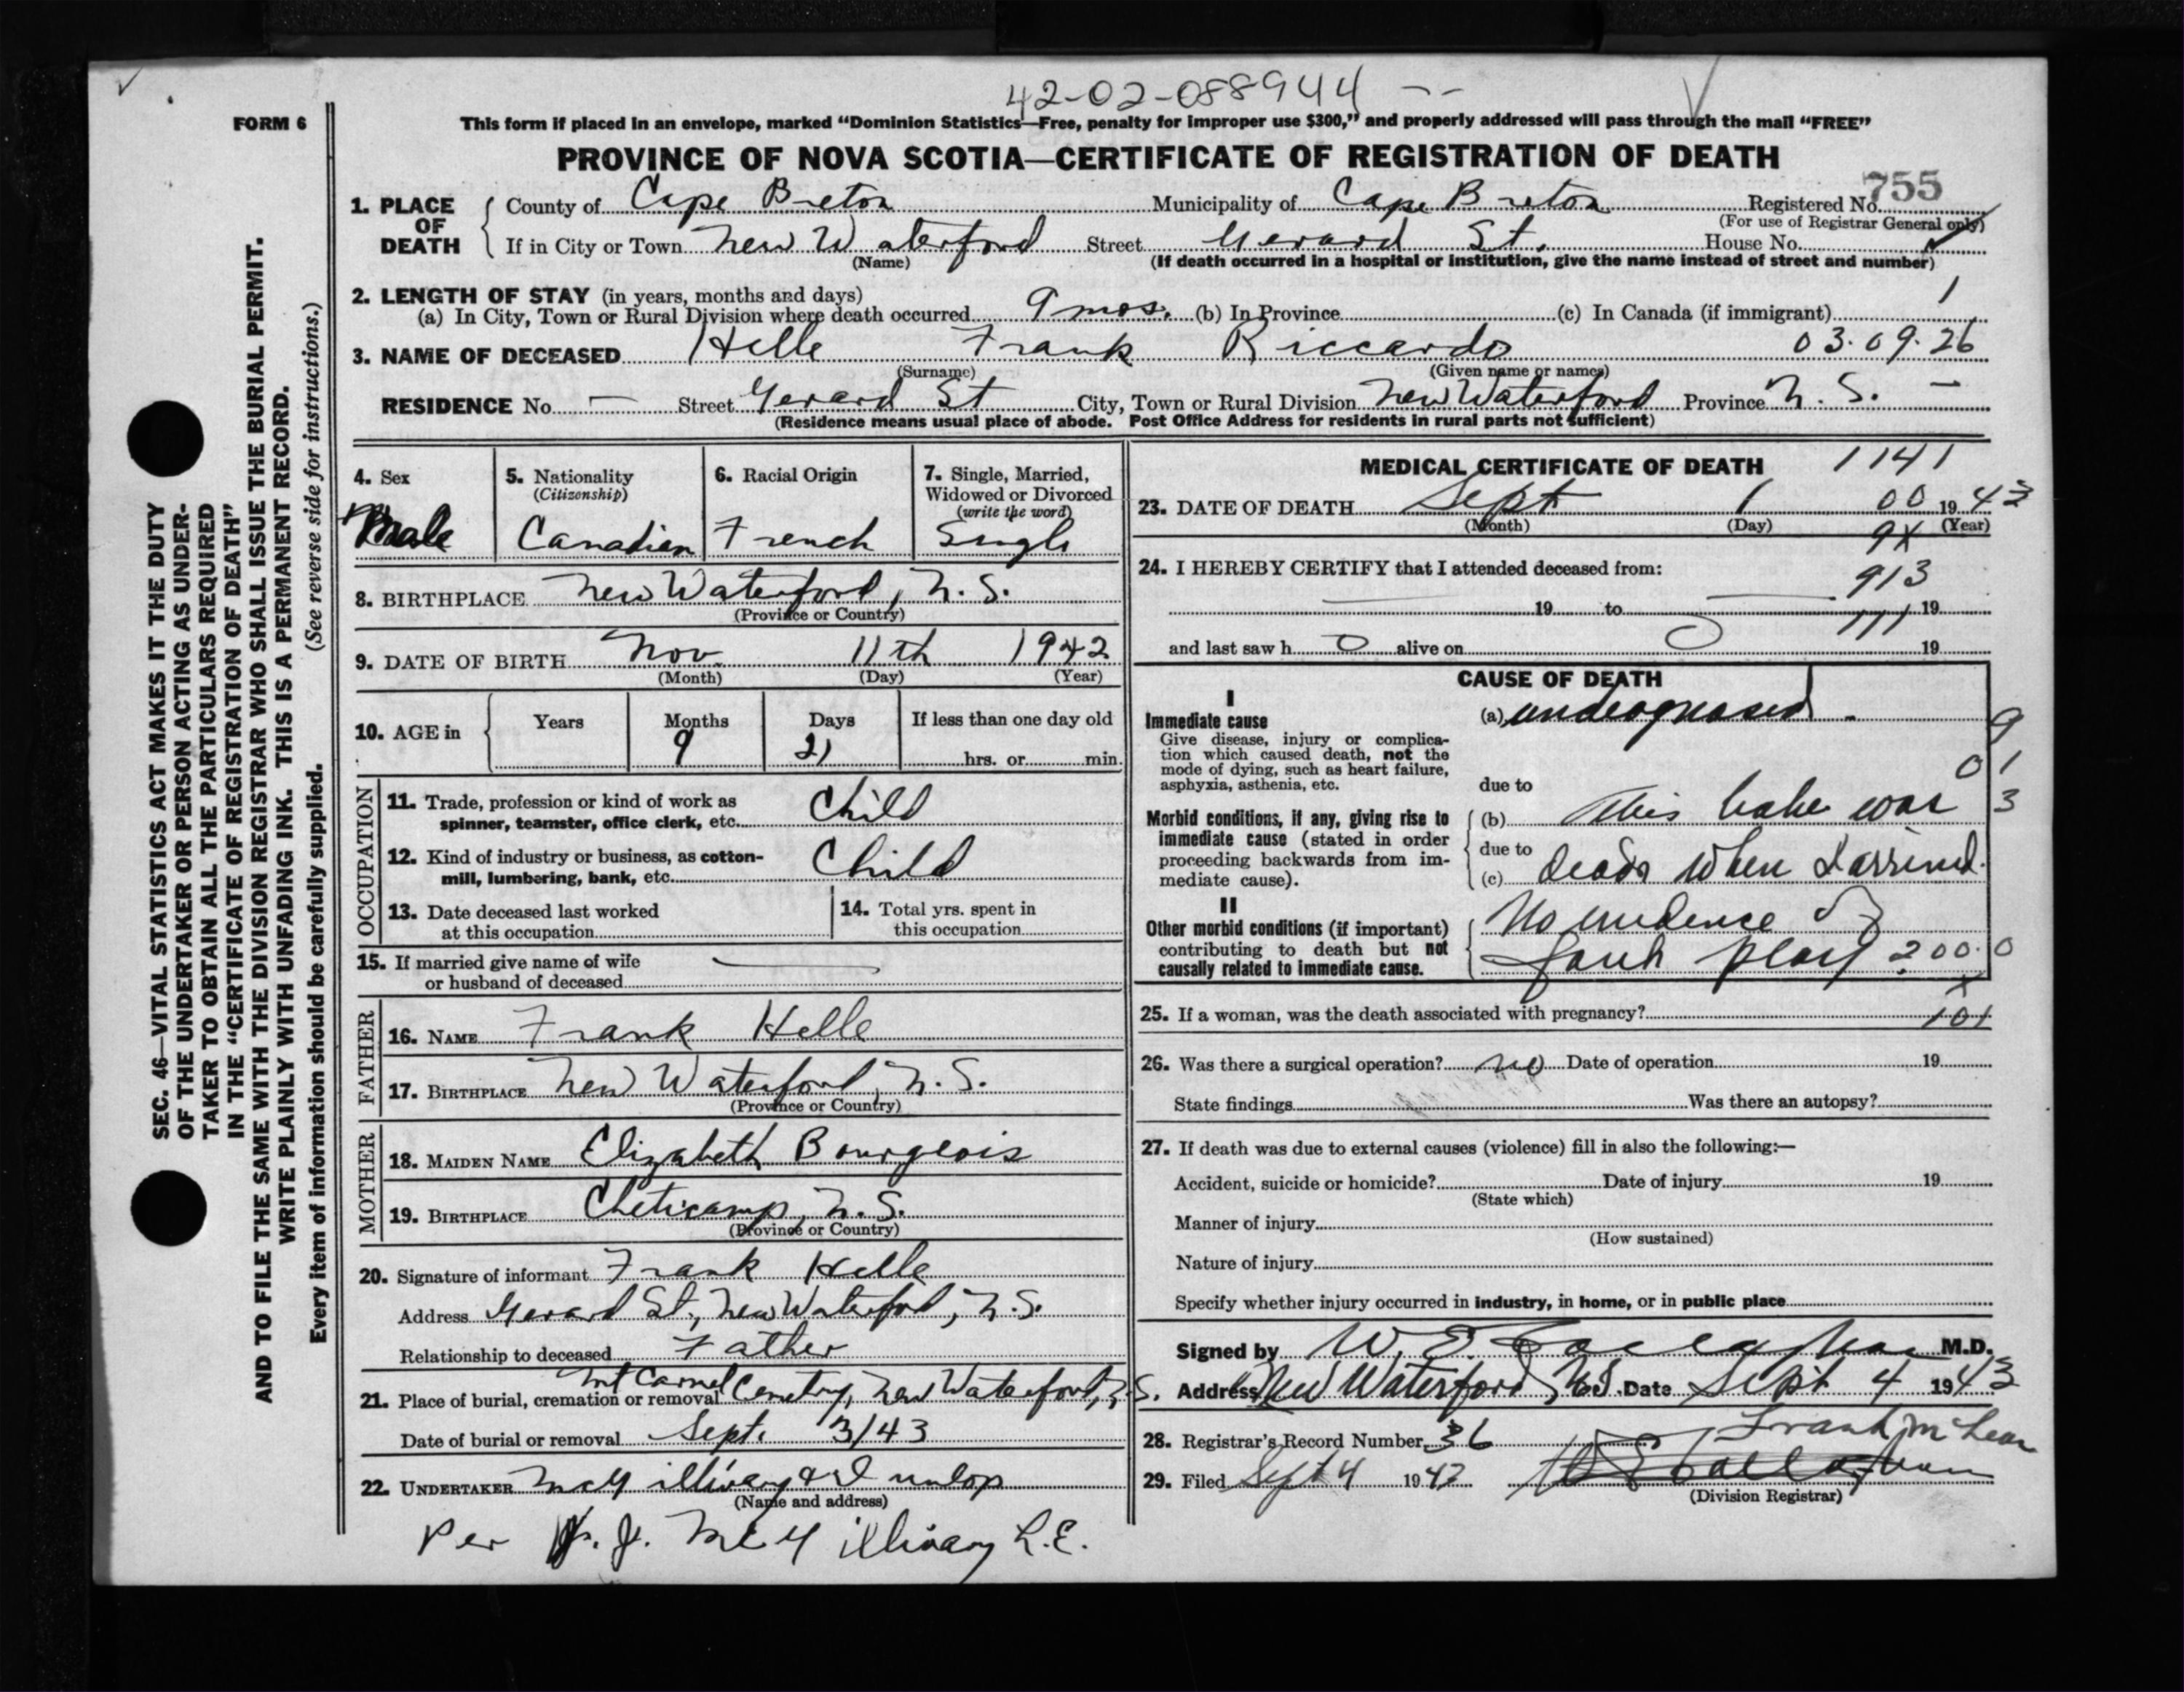 42-02-088944 --
FORM 6
This form if placed in an envelope, marked “Dominion Statistics—Free, penalty for improper use $300,” and properly addressed will pass through the mail “FREE”
PROVINCE OF NOVA SCOTIA—CERTIFICATE OF REGISTRATION OF DEATH
755
1. PLACE OF DEATH County of Cape Breton Municipality of Cape Breton Registered No.
(For use of Registrar General only)
If in City or Town New Waterford Street Gerard St. House No.
(Name) (If death occurred in a hospital or institution, give the name instead of street and number)
2. LENGTH OF STAY (in years, months and days) 1
(a) In City, Town or Rural Division where death occurred 9 mos. (b) In Province (c) In Canada (if immigrant)
3. NAME OF DECEASED Helle Frank Riccardo 03.09.26
(Surname) (Given name or names)
RESIDENCE No. — Street Gerard St City, Town or Rural Division New Waterford Province N.S. —
(Residence means usual place of abode. Post Office Address for residents in rural parts not sufficient)
4. Sex
Male
5. Nationality
(Citizenship)
Canadian
6. Racial Origin
French
7. Single, Married,
Widowed or Divorced
(write the word)
Single
8. BIRTHPLACE New Waterford, N.S.
(Province or Country)
9. DATE OF BIRTH Nov 11th 1942
(Month) (Day) (Year)
10. AGE in Years Months Days If less than one day old
9 21 hrs. or min.
OCCUPATION
11. Trade, profession or kind of work as
spinner, teamster, office clerk, etc. Child
12. Kind of industry or business, as cotton-
mill, lumbering, bank, etc. Child
13. Date deceased last worked
at this occupation
14. Total yrs. spent in
this occupation
15. If married give name of wife
or husband of deceased
FATHER
16. NAME Frank Helle
17. BIRTHPLACE New Waterford, N.S.
(Province or Country)
MOTHER
18. MAIDEN NAME Elizabeth Bourgeois
19. BIRTHPLACE Cheticamp, N.S.
(Province or Country)
20. Signature of informant Frank Helle
Address Gerard St., New Waterford, N.S.
Relationship to deceased Father
21. Place of burial, cremation or removal Mt Carmel Cemetry, New Waterford, N.S.
Date of burial or removal Sept. 3/43
22. UNDERTAKER McGillivary & Dunlop
(Name and address)
Per J. McGillivary L.E.
MEDICAL CERTIFICATE OF DEATH 1141
23. DATE OF DEATH Sept 1 00 1943
(Month) (Day) (Year)
9X
24. I HEREBY CERTIFY that I attended deceased from:
913
19 to 19
111
and last saw h alive on 19
CAUSE OF DEATH
I
Immediate cause
Give disease, injury or complica-
tion which caused death, not the
mode of dying, such as heart failure,
asphyxia, asthenia, etc.
(a) undiagnosed.
9
0 1
3
due to
Morbid conditions, if any, giving rise to
immediate cause (stated in order
proceeding backwards from im-
mediate cause).
(b) This babe was
due to
(c) dead when I arrived.
II
Other morbid conditions (if important)
contributing to death but not
causally related to immediate cause.
No evidence of
foul play 200.0
X
25. If a woman, was the death associated with pregnancy? 101
26. Was there a surgical operation? no Date of operation 19
State findings Was there an autopsy?
27. If death was due to external causes (violence) fill in also the following:—
Accident, suicide or homicide? Date of injury 19
(State which)
Manner of injury
(How sustained)
Nature of injury
Specify whether injury occurred in industry, in home, or in public place
Signed by W. E. Callaghan M.D.
Address New Waterford N.S. Date Sept 4 1943
28. Registrar's Record Number 36 Frank McLean
29. Filed Sept 4 1943 W E Callaghan
(Division Registrar)
SEC. 46—VITAL STATISTICS ACT MAKES IT THE DUTY
OF THE UNDERTAKER OR PERSON ACTING AS UNDER-
TAKER TO OBTAIN ALL THE PARTICULARS REQUIRED
IN THE “CERTIFICATE OF REGISTRATION OF DEATH”
AND TO FILE THE SAME WITH THE DIVISION REGISTRAR WHO SHALL ISSUE THE BURIAL PERMIT.
WRITE PLAINLY WITH UNFADING INK. THIS IS A PERMANENT RECORD.
Every item of information should be carefully supplied. (See reverse side for instructions.)